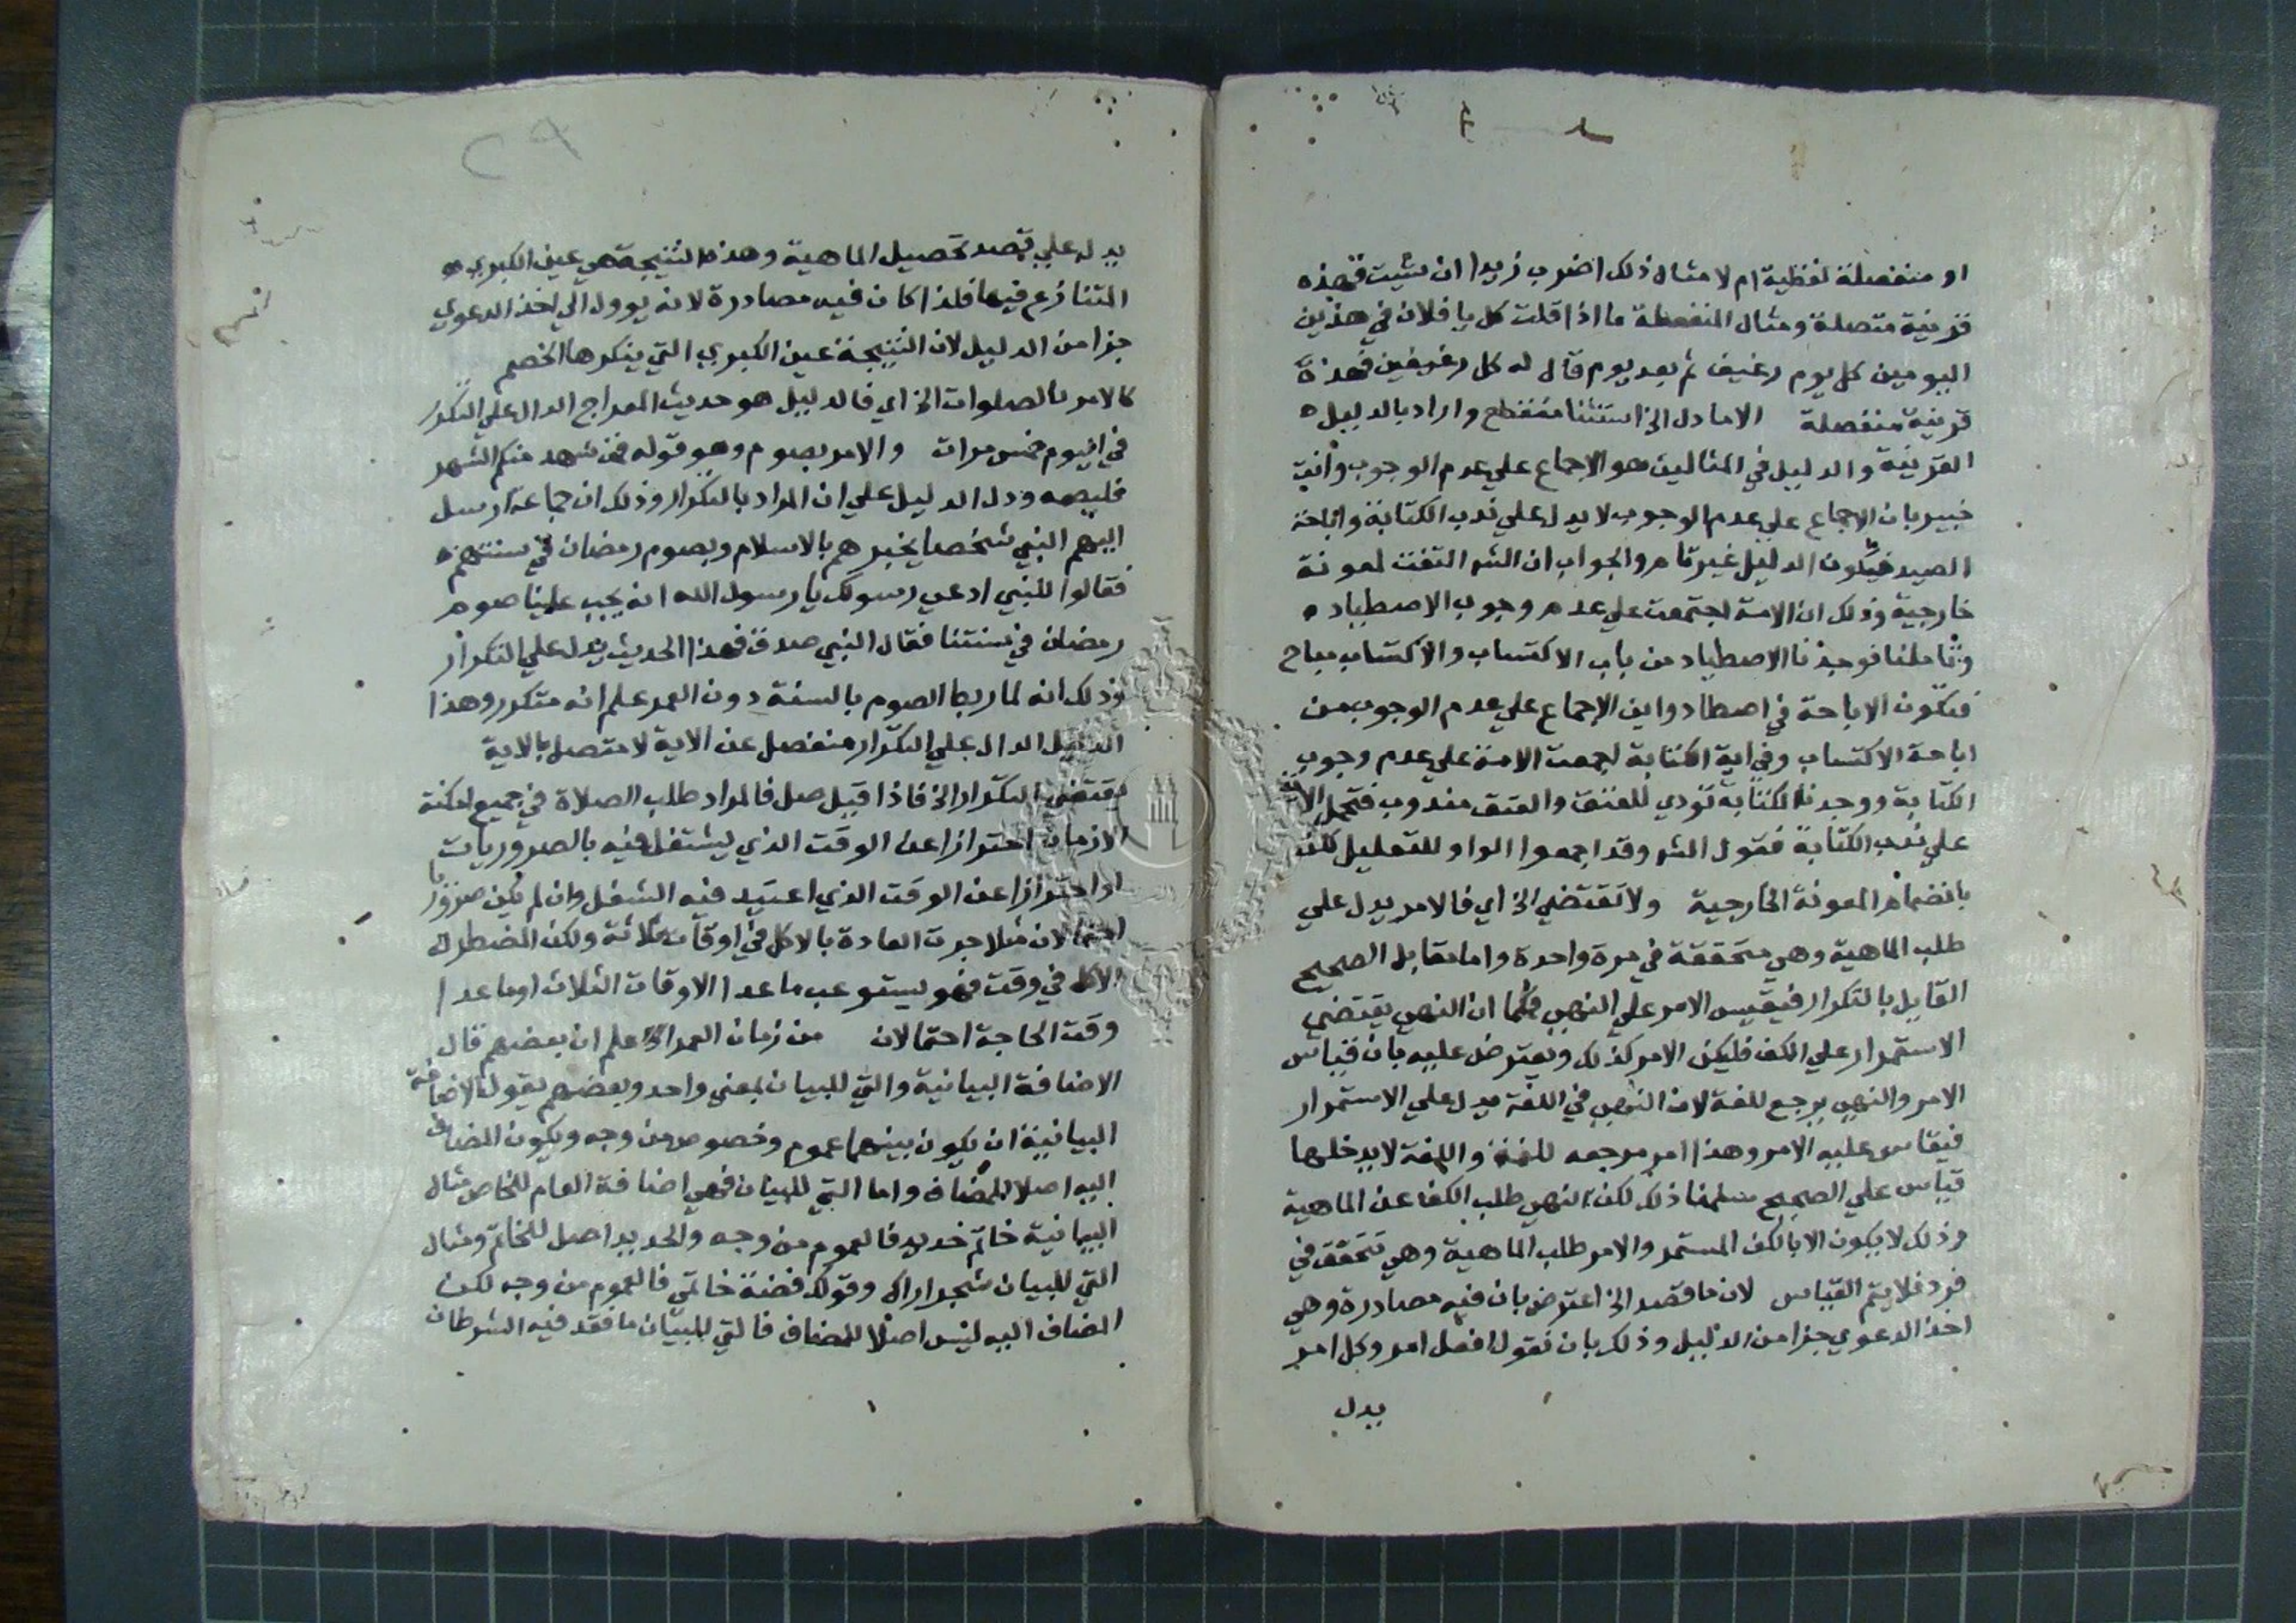 او منفصلة لفظية ام لا مثال ذلك اضرب زيدا ان شيت فهذه
قرينة متصلة ومثال المنفصلة ما اذا قلت كل يا فلان في هذين
اليومين كل يوم رغيف ثم بعد يوم قال له كل رغيفين فهذه
قرينة منفصلة الا ما دل الخ استثنا منقطع واراد بالدليل
القرينة والدليل في المثالين هو الاجماع علي عدم الوجوب وانت
خبير بان الاجماع علي عدم الوجوب لا يدل علي ندب الكتابة واباحة
الصيد فيكون الدليل غير تام والجواب ان الشر التفت لمعونة
خارجية وذلك ان الامة اجتمعت علي عدم وجوب الاصطياد
وتاملنا فوجدنا الاصطياد من باب الاكتساب والاكتساب مباح
فتكون الاباحة في اصطادوا من الاجماع علي عدم الوجوب من
اباحة الاكتساب وفي اية الكتابة اجمعت الامة علي عدم وجوب
الكتابة ووجدنا الكتابة تودي للعتق والعتق مندوب فتحمل الاية
علي ندب الكتابة فقول الشر وقد اجمعوا الواو للتعليل لكن
بانضمام المعونة الخارجية ولا تقتضي الخ اي فالامر يدل علي
طلب الماهية وهي متحققة في مرة واحدة واما مقابل الصحيح
القايل بالتكرار فيقيس الامر علي النهي فكما ان النهي يقتضي
الاستمرار علي الكف فليكن الامر كذلك ويعترض عليه بان قياس
الامر والنهي يرجع للغة لان النهي في اللغة يدل علي الاستمرار
فيقاس عليه الامر وهذا امر مرجعه للغة واللغة لا يدخلها
قياس علي الصحيح سلمنا ذلك لكن النهي طلب الكف عن الماهية
وذلك لا يكون الا بالكف المستمر والامر طلب الماهية وهي تتحقق في
فرد فلا يتم القياس لان ما قصد الخ اعترض بان فيه مصادرة وهي
اخذ الدعوي جزا من الدليل وذلك بان نقول افعل امر وكل امر
يدل
٢٩
يدل علي قصد تحصيل الماهية وهذه النتيجة هي عين الكبري
المتنازع فيها فلذا كان فيه مصادرة لانه يوول الي اخذ الدعوي
جزا من الدليل لان النتيجة عين الكبري التي ينكرها الخصم
كالامر بالصلوات الخ اي فالدليل هو حديث المعراج الدال علي التكرار
في اليوم خمس مرات والامر بصوم وهو قوله فمن شهد منكم الشهر
فليصمه ودل الدليل علي ان المراد بالتكرار وذلك ان جماعة ارسل
اليهم النبي شخصا يخبرهم بالاسلام وبصوم رمضان في سنتهم
فقالوا للنبي ادعي رسولك يا رسول الله انه يجب علينا صوم
رمضان في سنتنا فقال النبي صدق فهذا الحديث يدل علي التكرار
وذلك انه لما ربط الصوم بالسنة دون العمر علم انه متكرر وهذا
الدليل الدال علي التكرار منفصل عن الاية لا متصل بالاية
يقتضي التكرار الخ فاذا قيل صل فالمراد طلب الصلاة في جميع امكنة
الازمان احترازا عن الوقت الذي يشتغل فيه بالضروريات
او احترازا عن الوقت الذي اعتيد فيه الشغل وان لم يكن ضروريا
احتمالان مثلا جرت العادة بالاكل في اوقات ثلاثة ولكن المضطر له
الاكل في وقت فهو يستوعب ما عدا الاوقات الثلاث او ما عدا
وقت الحاجة احتمالان من زمان العمر الخ اعلم ان بعضهم قال
الاضافة البيانية والتي للبيان بمعني واحد وبعضهم يقول الاضافة
البيانية ان يكون بينهما عموم وخصوص من وجه ويكون المضاف
اليه اصلا للمضاف واما التي للبيان فهي اضافة العام للخاص مثال
البيانية خاتم حديد فالعموم من وجه والحديد اصل للخاتم ومثال
التي للبيان شجر اراك وقولك فضة خاتمي فالعموم من وجه لكن
المضاف اليه ليس اصلا للمضاف فالتي للبيان ما فقد فيه الشرطان